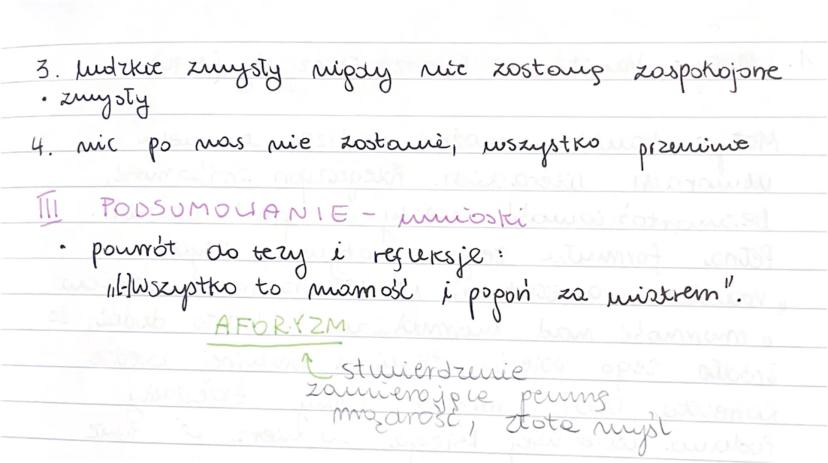 3. ludzkie zmysły nigdy nie zostaną zaspokojone
• zmysły
4. nic po nas nie zostanie, wszystko przeminie
III PODSUMOWANIE – wnioski
• powrót do tezy i refleksje:
"[-]wszystko to marność i pogoń za wiatrem".
AFORYZM
stwierdzenie
zawierające pewną
mądrość, złota myśl